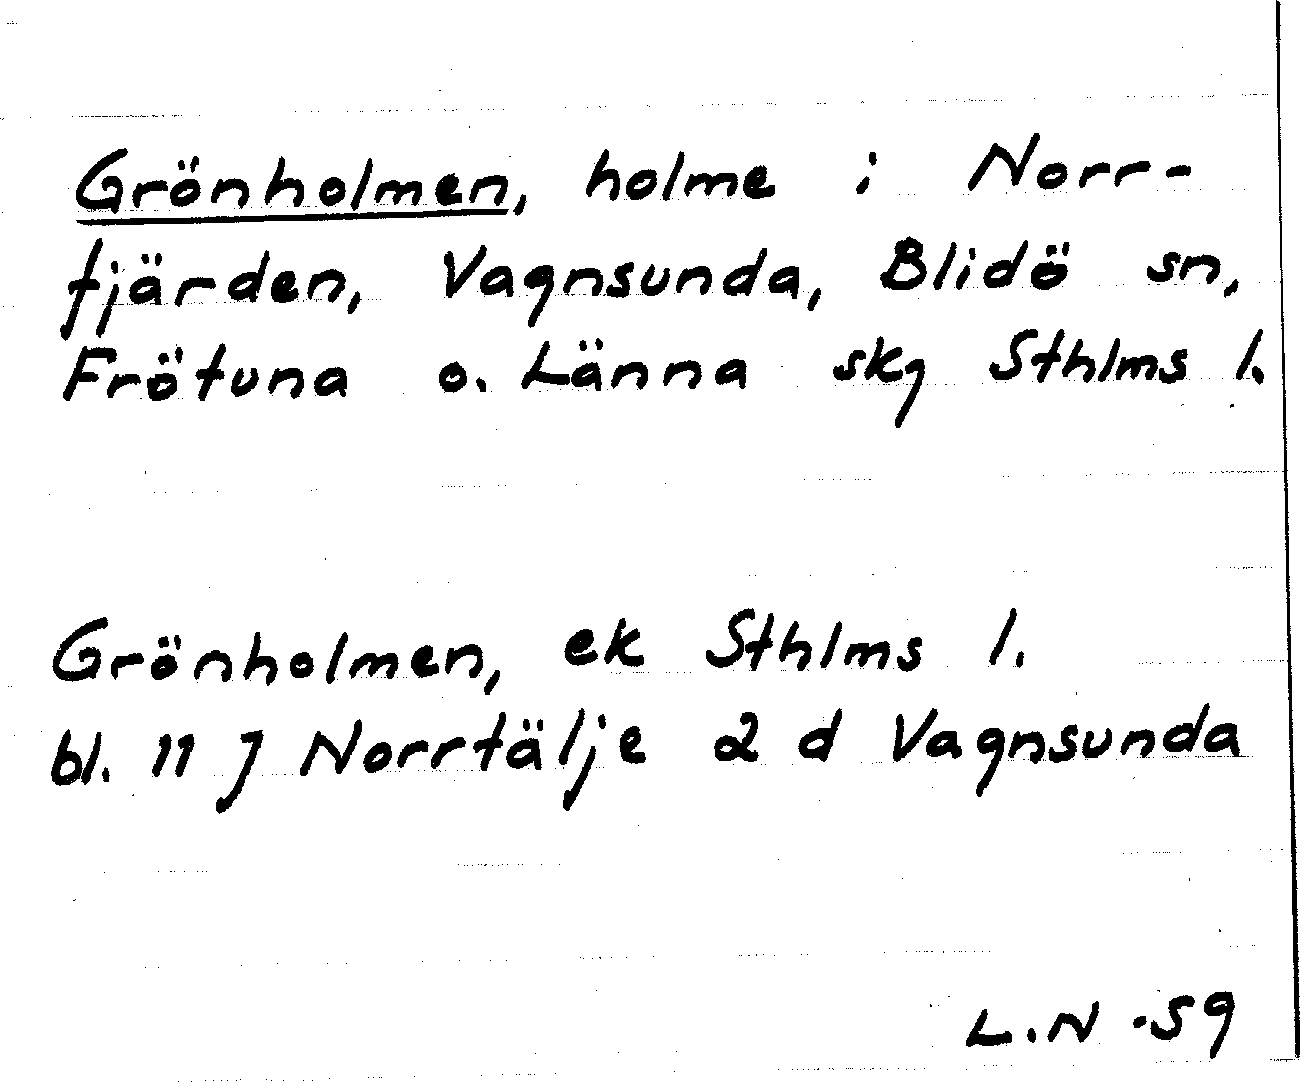 Grönholmen, holme i Norr-
fjärden, Vagnsunda, Blidö sn,
Frötuna o. Länna skg Sthlms l.
Grönholmen, ek Sthlms l.
bl. 11 J Norrtälje 2 d Vagnsunda
L.N -59